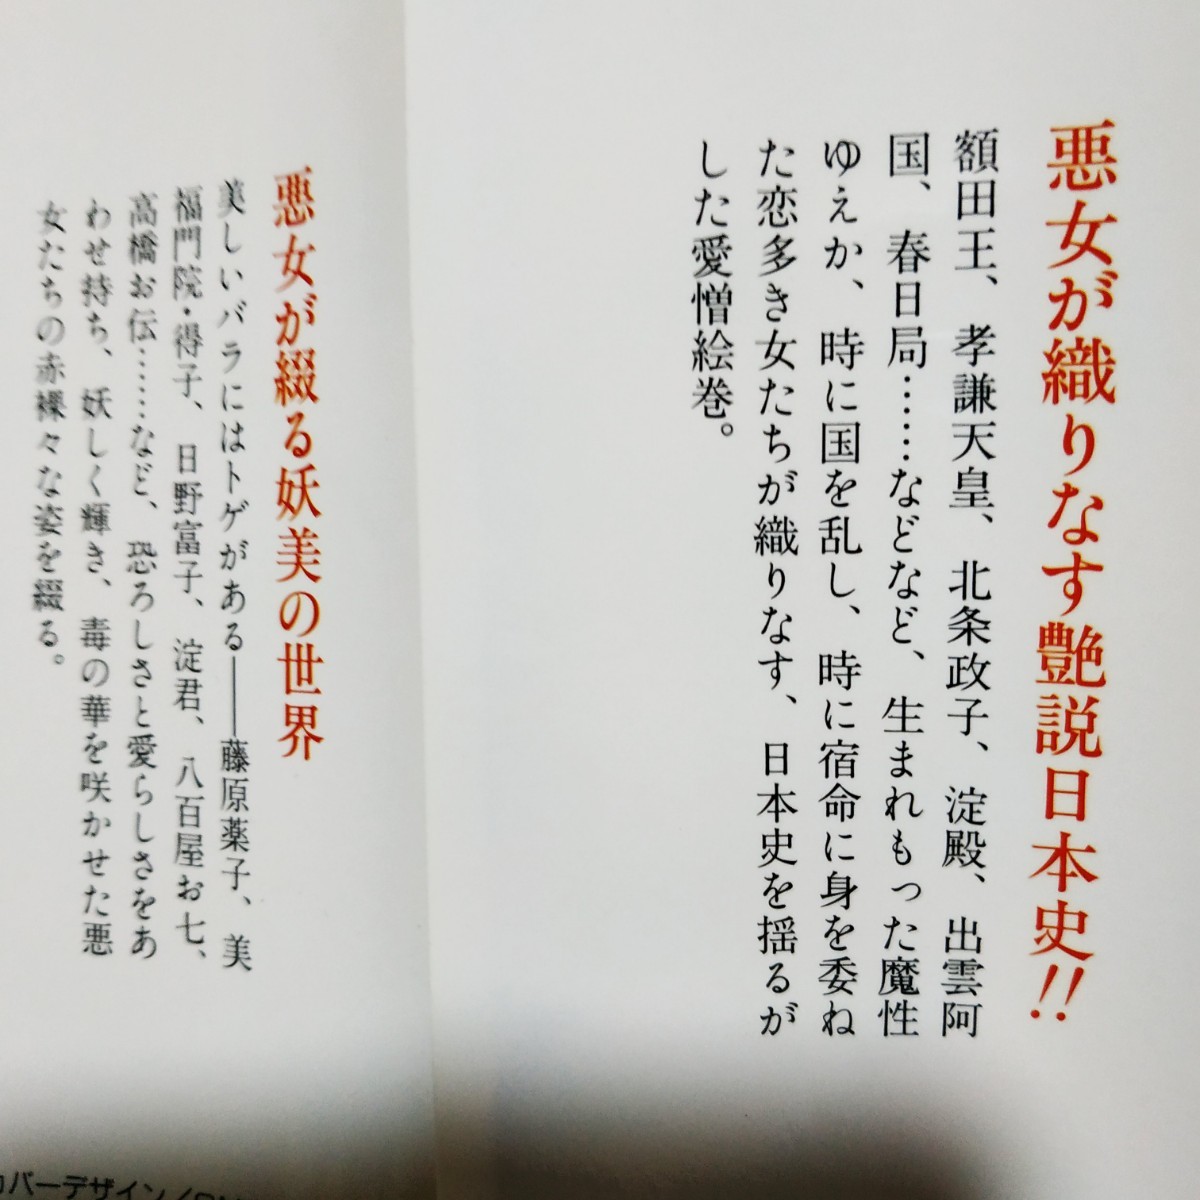 悪女が織りなす艶説日本史!!
額田王、孝謙天皇、北条政子、淀殿、出雲阿
国、春日局……などなど、生まれもった魔性
ゆえか、時に国を乱し、時に宿命に身を委ね
た恋多き女たちが織りなす、日本史を揺るが
した愛憎絵巻。
悪女が綴る妖美の世界
美しいバラにはトゲがある――藤原薬子、美
福門院・得子、日野富子、淀君、八百屋お七、
高橋お伝……など、恐ろしさと愛らしさをあ
わせ持ち、妖しく輝き、毒の華を咲かせた悪
女たちの赤裸々な姿を綴る。
カバーデザイン/